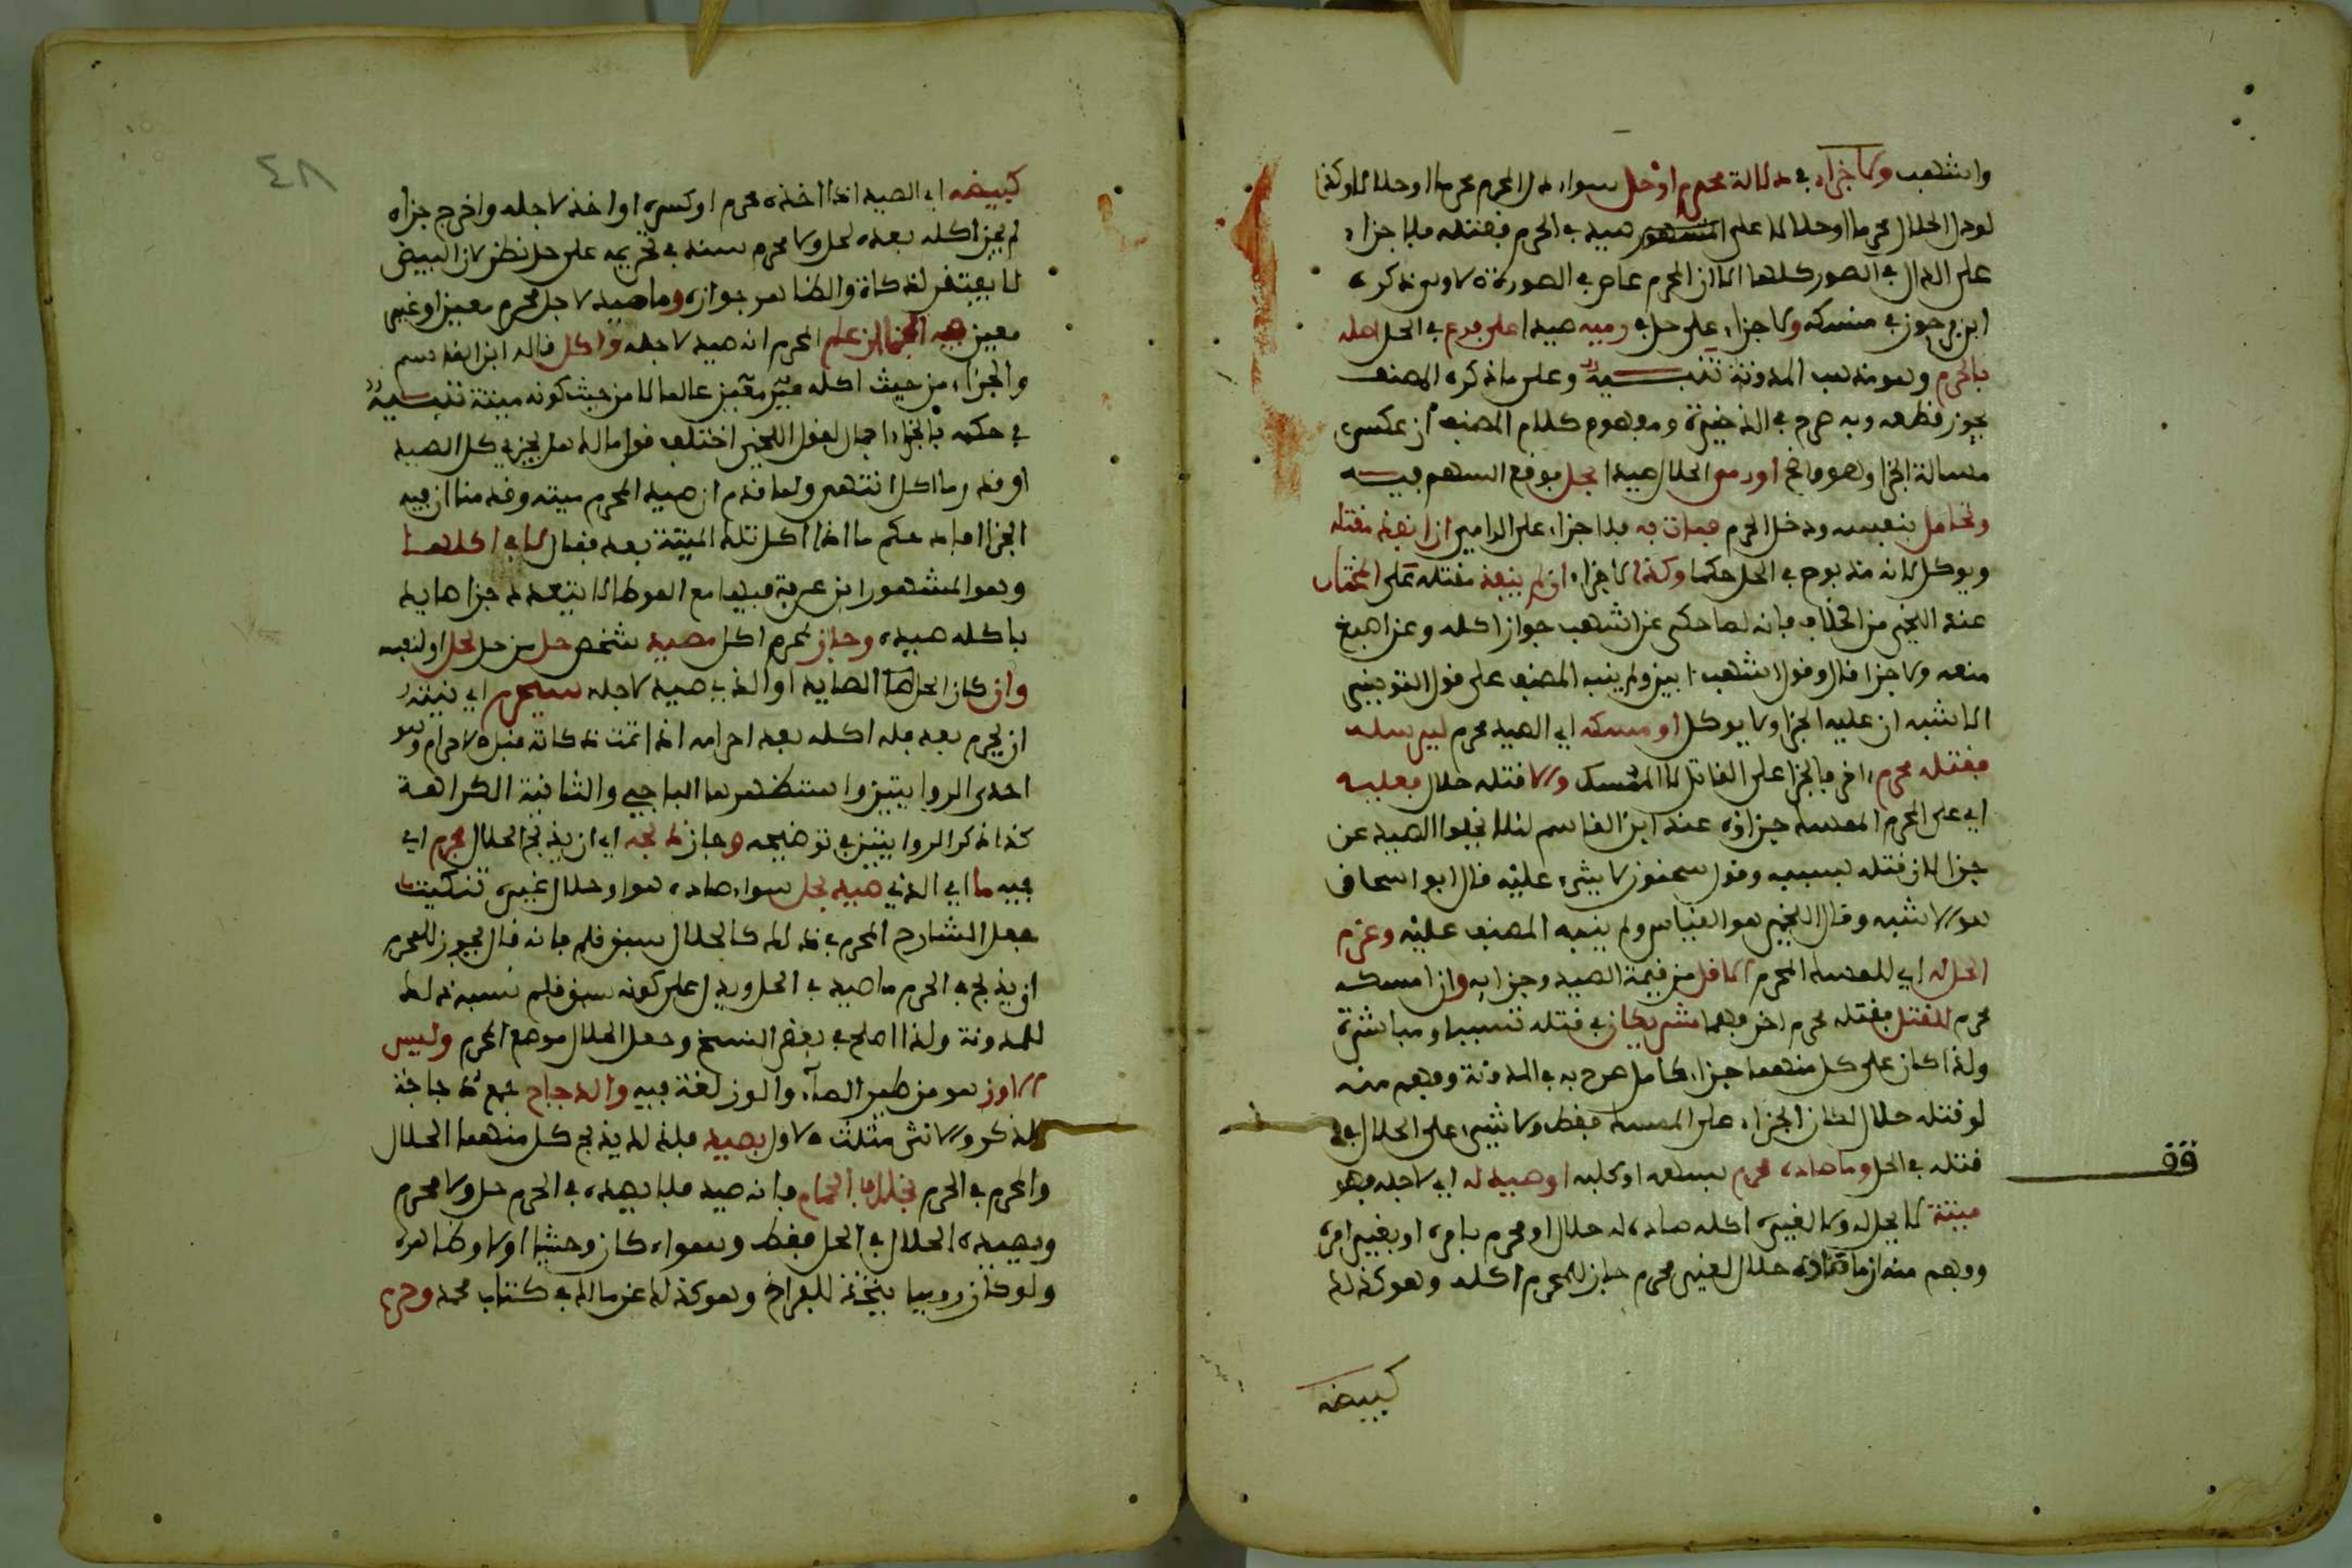 واشهب ولا جزاء في دلالة محرم او حل سواء دل المحرم محرما او حلالا وكذا
لو دل الحلال محرما او حلالا على صيد في الحرم فقتله فلا جزاء
على الدال في الصور كلها الا ان المحرم عاص في الصورة الاولى ذكره
ابن فرحون في منسكه ولا جزاء على حل في رميه صيدا على فرع في الحل اصله
بالحرم وهو مذهب المدونة تنبيه وعلى ما ذكره المصنف
يجوز قطعه وبه صرح في الذخيرة ومفهوم كلام المصنف ان عكس
مسالة الجزا وهو واضح او رمى الحلال صيدا بحل فوقع السهم فيه
وتحامل بنفسه ودخل الحرم فمات به فلا جزاء على الرامي ان انفذ مقتله
ويوكل لانه مذبوح في الحل حكما وكذا لا جزاء ان لم ينفذ مقتله على المختار
عند اللخمي من الخلاف فانه لما حكى عن اشهب جواز اكله وعن اصبغ
منعه ولا جزا قال وقول اشهب ابين ولم ينبه المصنف على قول التونسي
الاشبه ان عليه الجزا ولا يوكل او مسكه اي الصيد محرم ليرسله
فقتله محرم اخر فالجزا على القاتل لا الممسك والا قتله حلال فعليه
اي على المحرم الممسك جزاؤه عند ابن القاسم لئلا يخلوا الصيد عن
جزا لان قتله بسببه وقول سحنون لا شيء عليه قال ابو اسحاق
هو الاشبه وقال اللخمي هو القياس ولم ينبه المصنف عليه وغرم
الحل له اي للممسك المحرم الاقل من قيمة الصيد وجزايه وان امسكه
محرم للقتل فقتله محرم اخر فهما شريكان في قتله تسببا ومباشرة
ولذا كان على كل منهما جزاء كامل صرح به في المدونة وفهم منه
لو قتله حلال لكان الجزاء على الممسك فقط ولا شيء على الحلال في
قتله في الحل وما صاده محرم بسهمه او كلبه او صيد له اي لاجله فهو
ميتة لا يحل له ولا لغيره اكله صاده له حلال او محرم بامره او بغير امره
وفهم منه ان ما صاده حلال لغير محرم جاز للمحرم اكله وهو كذلك
كبيضه
قف
٤٨
كبيضه اي الصيد اذا اخذه محرم او كسره او اخذ لاجله واخرج جزاه
لم يجز اكله بعده لحل ولا محرم سند في تحريمه على حل نظر لان البيض
لا يفتقر لذكاة والظاهر جوازه وما صيد لاجل محرم معين او غير
معين فيه الجزا ان علم المحرم انه صيد لاجله واكل قاله ابن القاسم
والجزاء من حيث اكله عالما لا من حيث كونه ميتة تنبيه
في حكمه بالجزاء اجمال لقول اللخمي اختلف قول مالك هل يجزي كل الصيد
او قدر ما اكل انتهى ولما قدم ان صيد المحرم ميتة وقدمنا ان فيه
الجزا افاد حكم ما اذا اكل تلك الميتة بعد فقال لا في اكلها
وهو المشهور ابن عرفة فيها مع الموطا لا يتعدد جزا صايد
باكله صيده وجاز لمحرم اكل مصيد شخص حل من حل لحل او لنفسه
وان كان الحل الصايد او الذي صيد لاجله سيحرم اي نيته
ان يحرم بعد فله اكله بعد احرامه اذا تمت ذكاته قبل الاحرام وهو
احدى الروايتين واستظهرها الباجي والثانية الكراهة
كذا ذكر الروايتين في توضيحه وجاز ذبحه اي ان يذبح الحلال بحرم اي
فيه ما اي الذي صيد بحل سواء صاده هو او حلال غيره تنكيت
جعل الشارح المحرم في ذلك كالحلال سبق قلم فانه قال يجوز للمحرم
ان يذبح في الحرم ما صيد في الحل ويدل على كونه سبق قلم نسبه ذلك
للمدونة ولذا اصلح في بعض النسخ وجعل الحلال موضع المحرم وليس
الاوز هو من طير الماء والوز لغة فيه والدجاج جمع دجاجة
للذكر والانثى مثلث الاول بصيد فلذلك يذبح كل منهما الحلال
والمحرم في الحرم بخلاف الحمام فانه صيد فلا يصيده في الحرم حل ولا محرم
ويصيده الحلال في الحل فقط وسواء كان وحشيا او لا وظاهره
ولو كان روميا يتخذ للفراخ وهو كذلك عن مالك في كتاب محمد وحرم